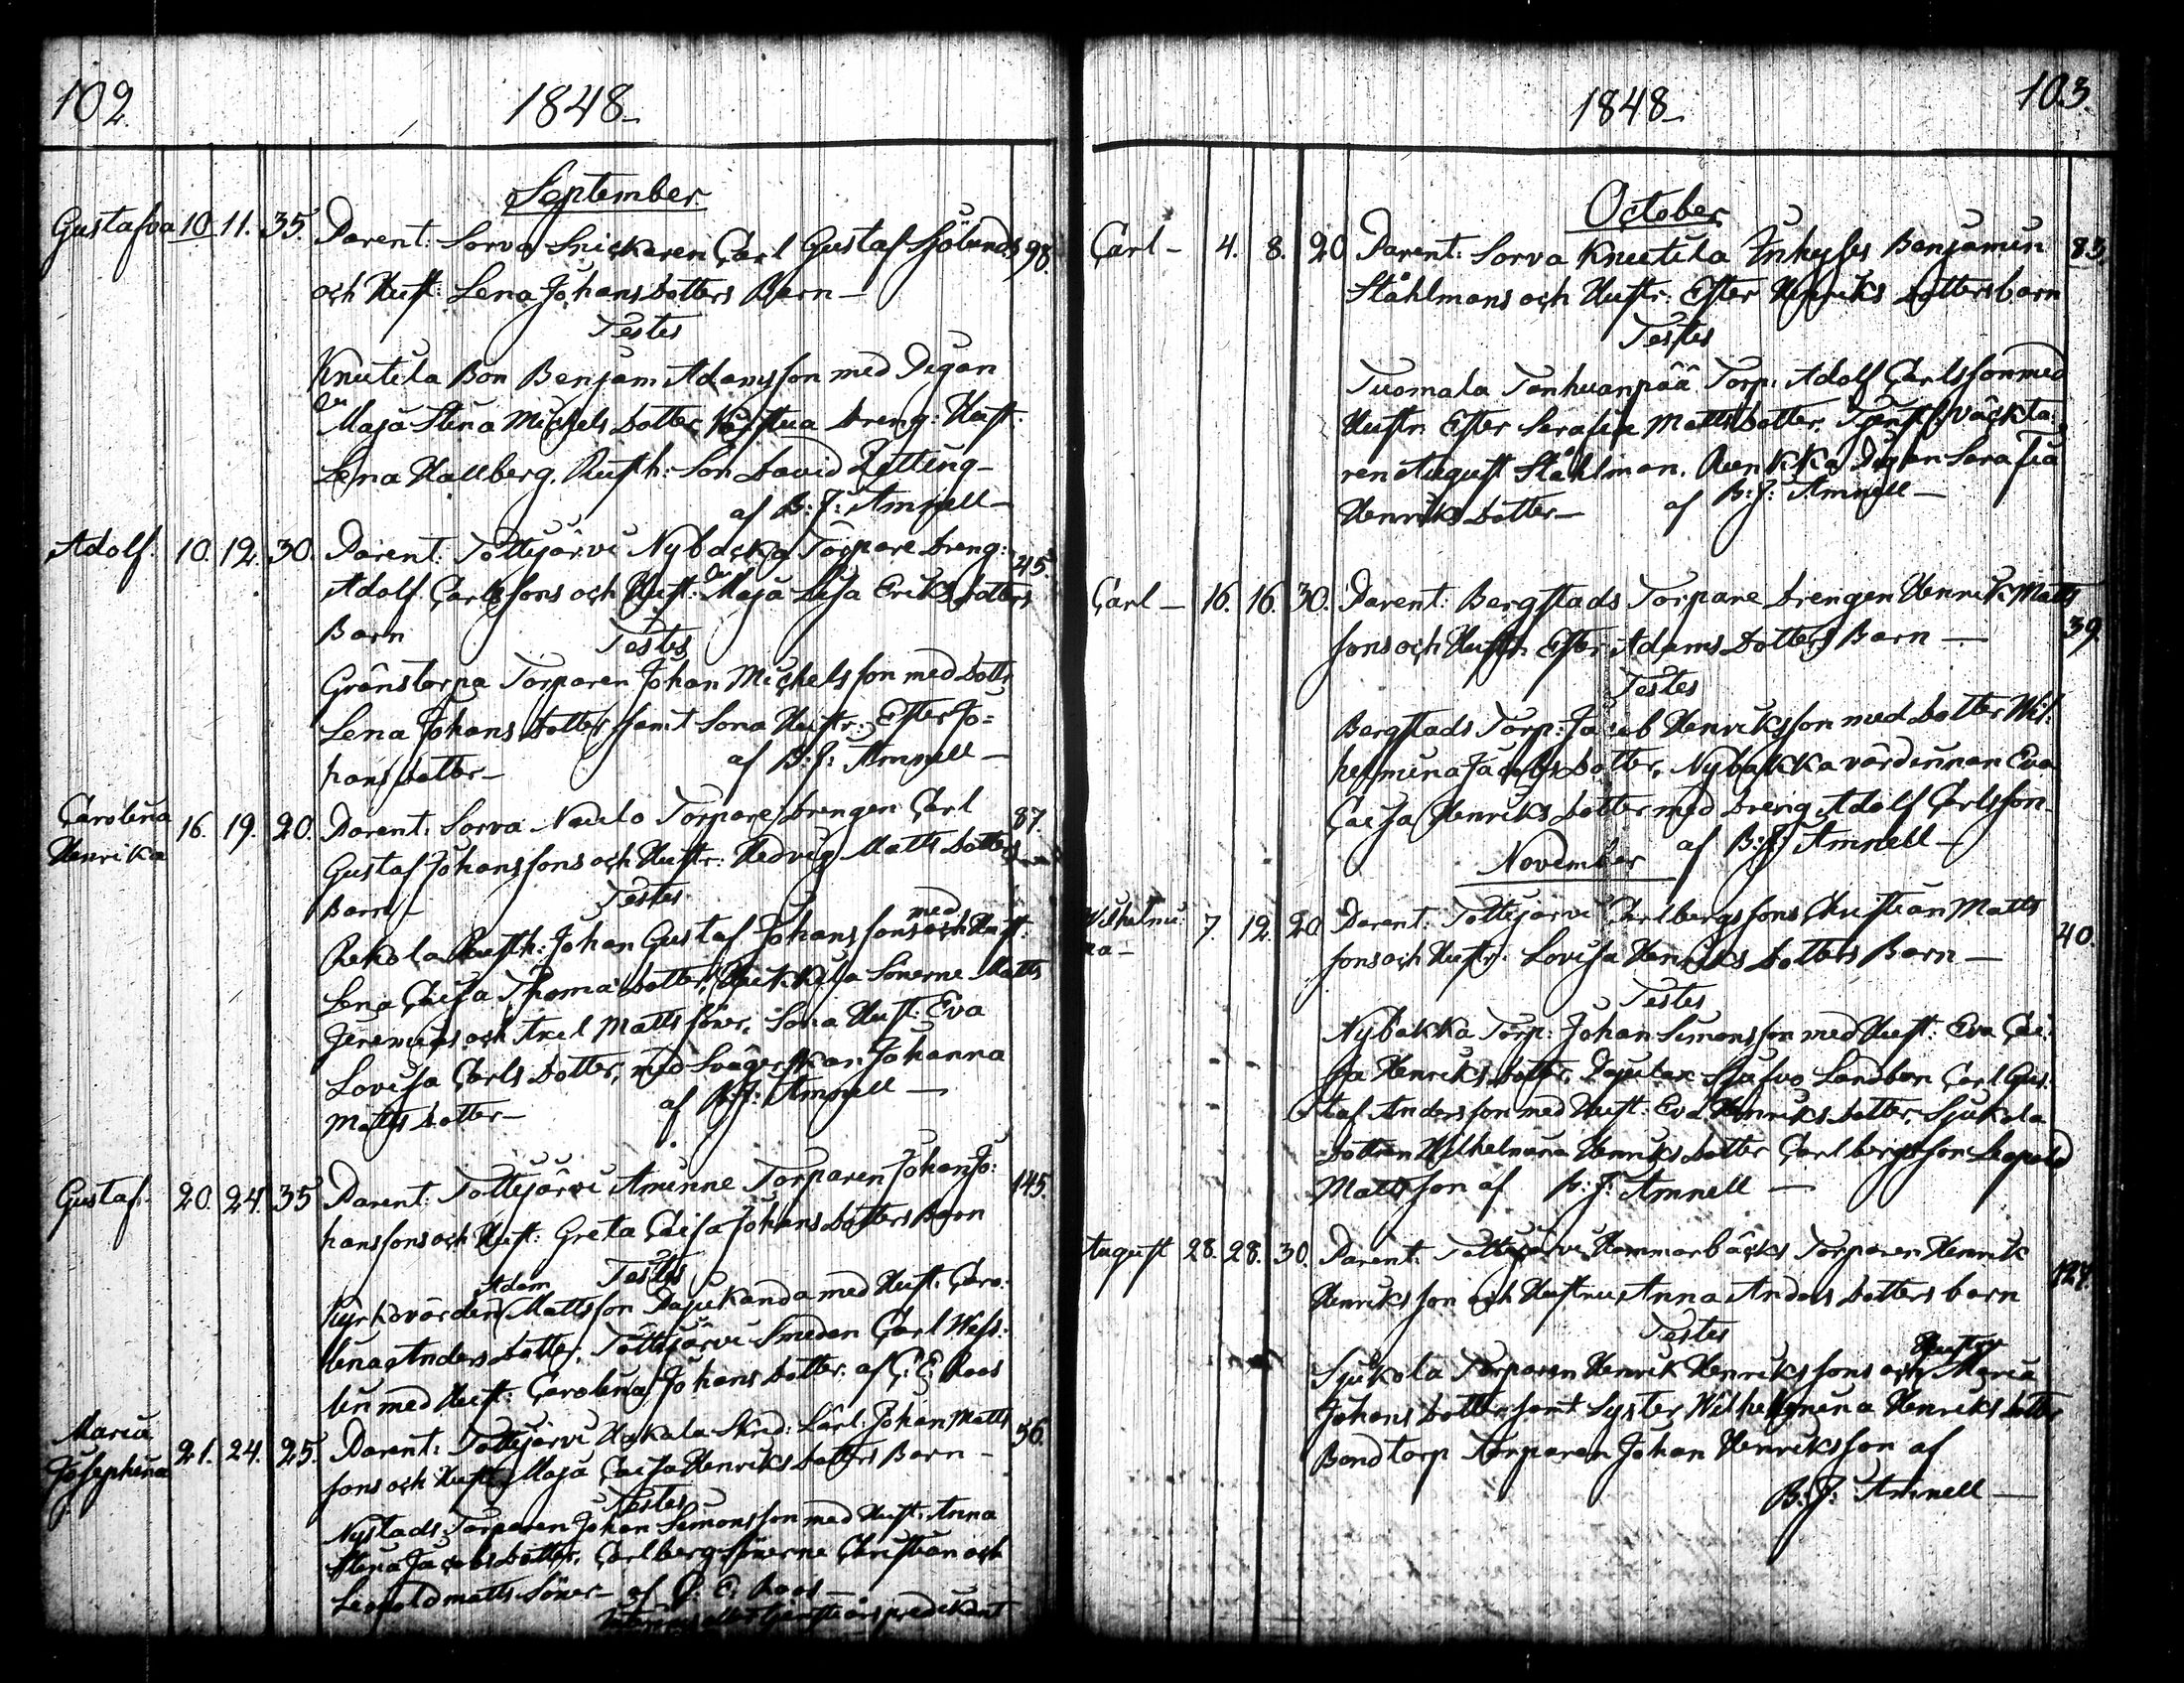 102.
1848
September
Gustafva 10. 11. 35. Parent: Sorva Snickaren Carl Gustaf Sjölunds 98.
och Hust: Lena Johans dotters Barn
Testes
Knutila Bon Benjam Adamsson med Pigan
Maja Stina Michels dotter, dreng: Hust:
Lena Hallberg, Rusth: Son David Zetting
af B: J: Amnell
Adolf. 10. 12. 30. Parent: Tottijärvi Nybacka Torpare dreng: 45.
Adolf Carlssons och Hust: Maja Lisa Eriks dotters
Barn Testes
Gränstorpa Torparen Johan Michelsson med dottr
Lena Johans dotter samt Sona Hustr: Ester Jo=
hans dotter af B: J: Amnell
Carolina
Henrika 16. 19. 20. Parent: Sorva Naulo Torpare drengen Carl 87.
Gustaf Johanssons och Hustr: Hedvig Matts dotters
Barn Testes
Rekola Rusth: Johan Gustaf Johanssons med och Hust:
Lena Caisa Thomæ dotter, Heikkilä Sönerne Matts
Jeremias och Axel Matts söner, Sona Hust: Eva
Lovisa Carls dotter, med Svägerskan Johanna
Matts dotter af B: J: Amnell
Gustaf. 20. 24. 35 Parent: Tottijärvi Aminne Torparen Johan Jo: 145.
hanssons och Hust: Greta Caisa Johans dotters Barn
Testes
Kyrkovärden Adam Mattsson Pajukanda med Hust: Caro:
lina Anders dotter, Tottijärvi Smeden Carl Wess:
lin med Hust: Carolina Johans dotter. af C: E: Roos
Maria
Josephina 21. 24. 25. Parent: Tottijärvi Hakala Skrd: Lärl: Johan Matts 56.
sons och Hust: Maja Caisa Henriks dotters Barn
Testes
Nystads Torparen Johan Simonsson med Hust: Anna
Stina Jacobs dotter, Carlberg Sönerne Christian och
Leopold matts Söner af C: E: Roos
predikant
1848
103.
October
Carl 4. 8. 20 Parent: Sorva Knutila Inhyses Benjamin 83.
Ståhlmans och Hustr: Ester Henriks dotters barn
Testes
Tuomala Tanhuanpää Torp: Adolf Carlsson med
Hustr: Ester Serafia Matts dotter,
ren August Ståhlman, Pigan Serafia
Henriks dotter af B: J: Amnell
Carl 16. 16. 30. Parent: Bergstads Torpare drengen Henrik Matts
sons och Hustr: Ester Adams dotters Barn 39
Testes
Bergstads Torp: Jacob Henriksson med dotter Wil:
helmina Jacobs dotter, Nybakka värdinnan Eva
Caisa Henriks dotter med dreng Adolf Carlsson
af B: J: Amnell
November
Wilhelmi:
na 7. 12. 20 Parent: Tottijärvi Carlbergs sons Christian Matts
sons och Hustr: Lovisa Henriks dotters Barn 40.
Testes
Nybakka Torp: Johan Simonsson med Hust: Eva Cai:
sa Henriks dotter, Landbon Carl Gus:
taf Andersson med Hust: Eva Henriks dotter, Sjukola
dottren Wilhelmina Henriks dotter Carlbergs son Leopold
Mattsson af B: J: Amnell
August 28. 28. 30. Parent: Tottijärvi Hammarbäcks Torparen Henrik
Henriksson och Hustrus Anna Anders dotters barn 127.
Testes
Sjukola Torparen Henrik Henrikssons och Hustru Maria
Johans dotter samt Syster Wilhelmina Henriks dotter
Bondtorp Torparen Johan Henriksson af
B: J: Amnell